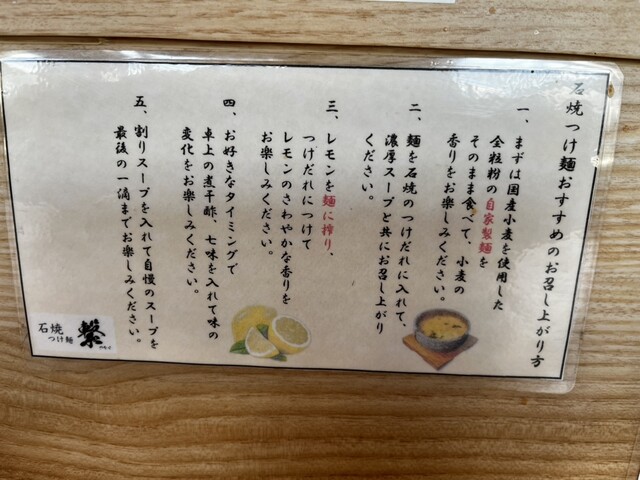 石焼つけ麺おすすめのお召し上がり方
一、まずは国産小麦を使用した
全粒粉の自家製麺を
そのまま食べて、小麦の
香りをお楽しみください。
二、麺を石焼のつけだれに入れて、
濃厚スープと共にお召し上がり
ください。
三、レモンを麺に搾り、
つけだれにつけて
レモンのさわやかな香りを
お楽しみください。
四、お好きなタイミングで
卓上の煮干酢、七味を入れて味の
変化をお楽しみください。
五、割りスープを入れて自慢のスープを
最後の一滴までお楽しみください。
石焼
つけ麺
繋